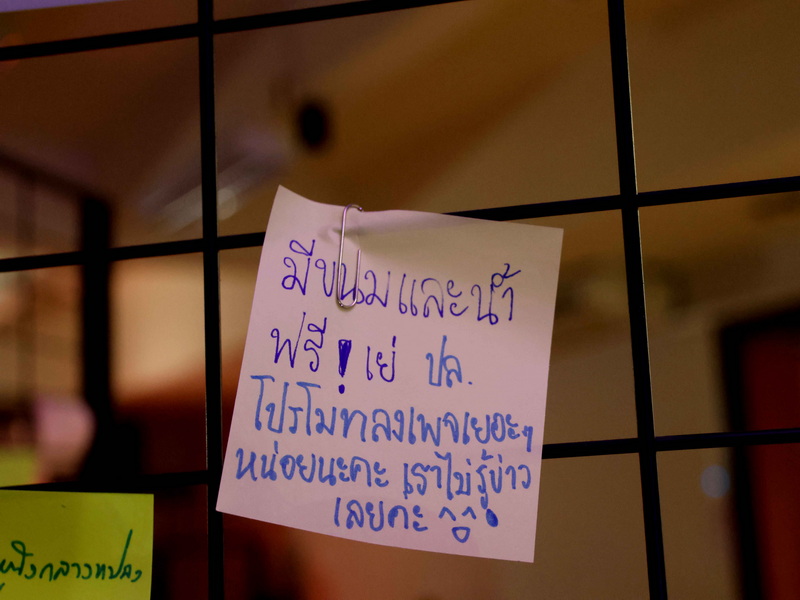 มีขนมและน้ำ
ฟรี! เย่ ปล.
โปรโมทลงเพจเยอะๆ
หน่อยนะคะ เราไม่รู้ข่าว
เลยค่ะ
กลางแปลง